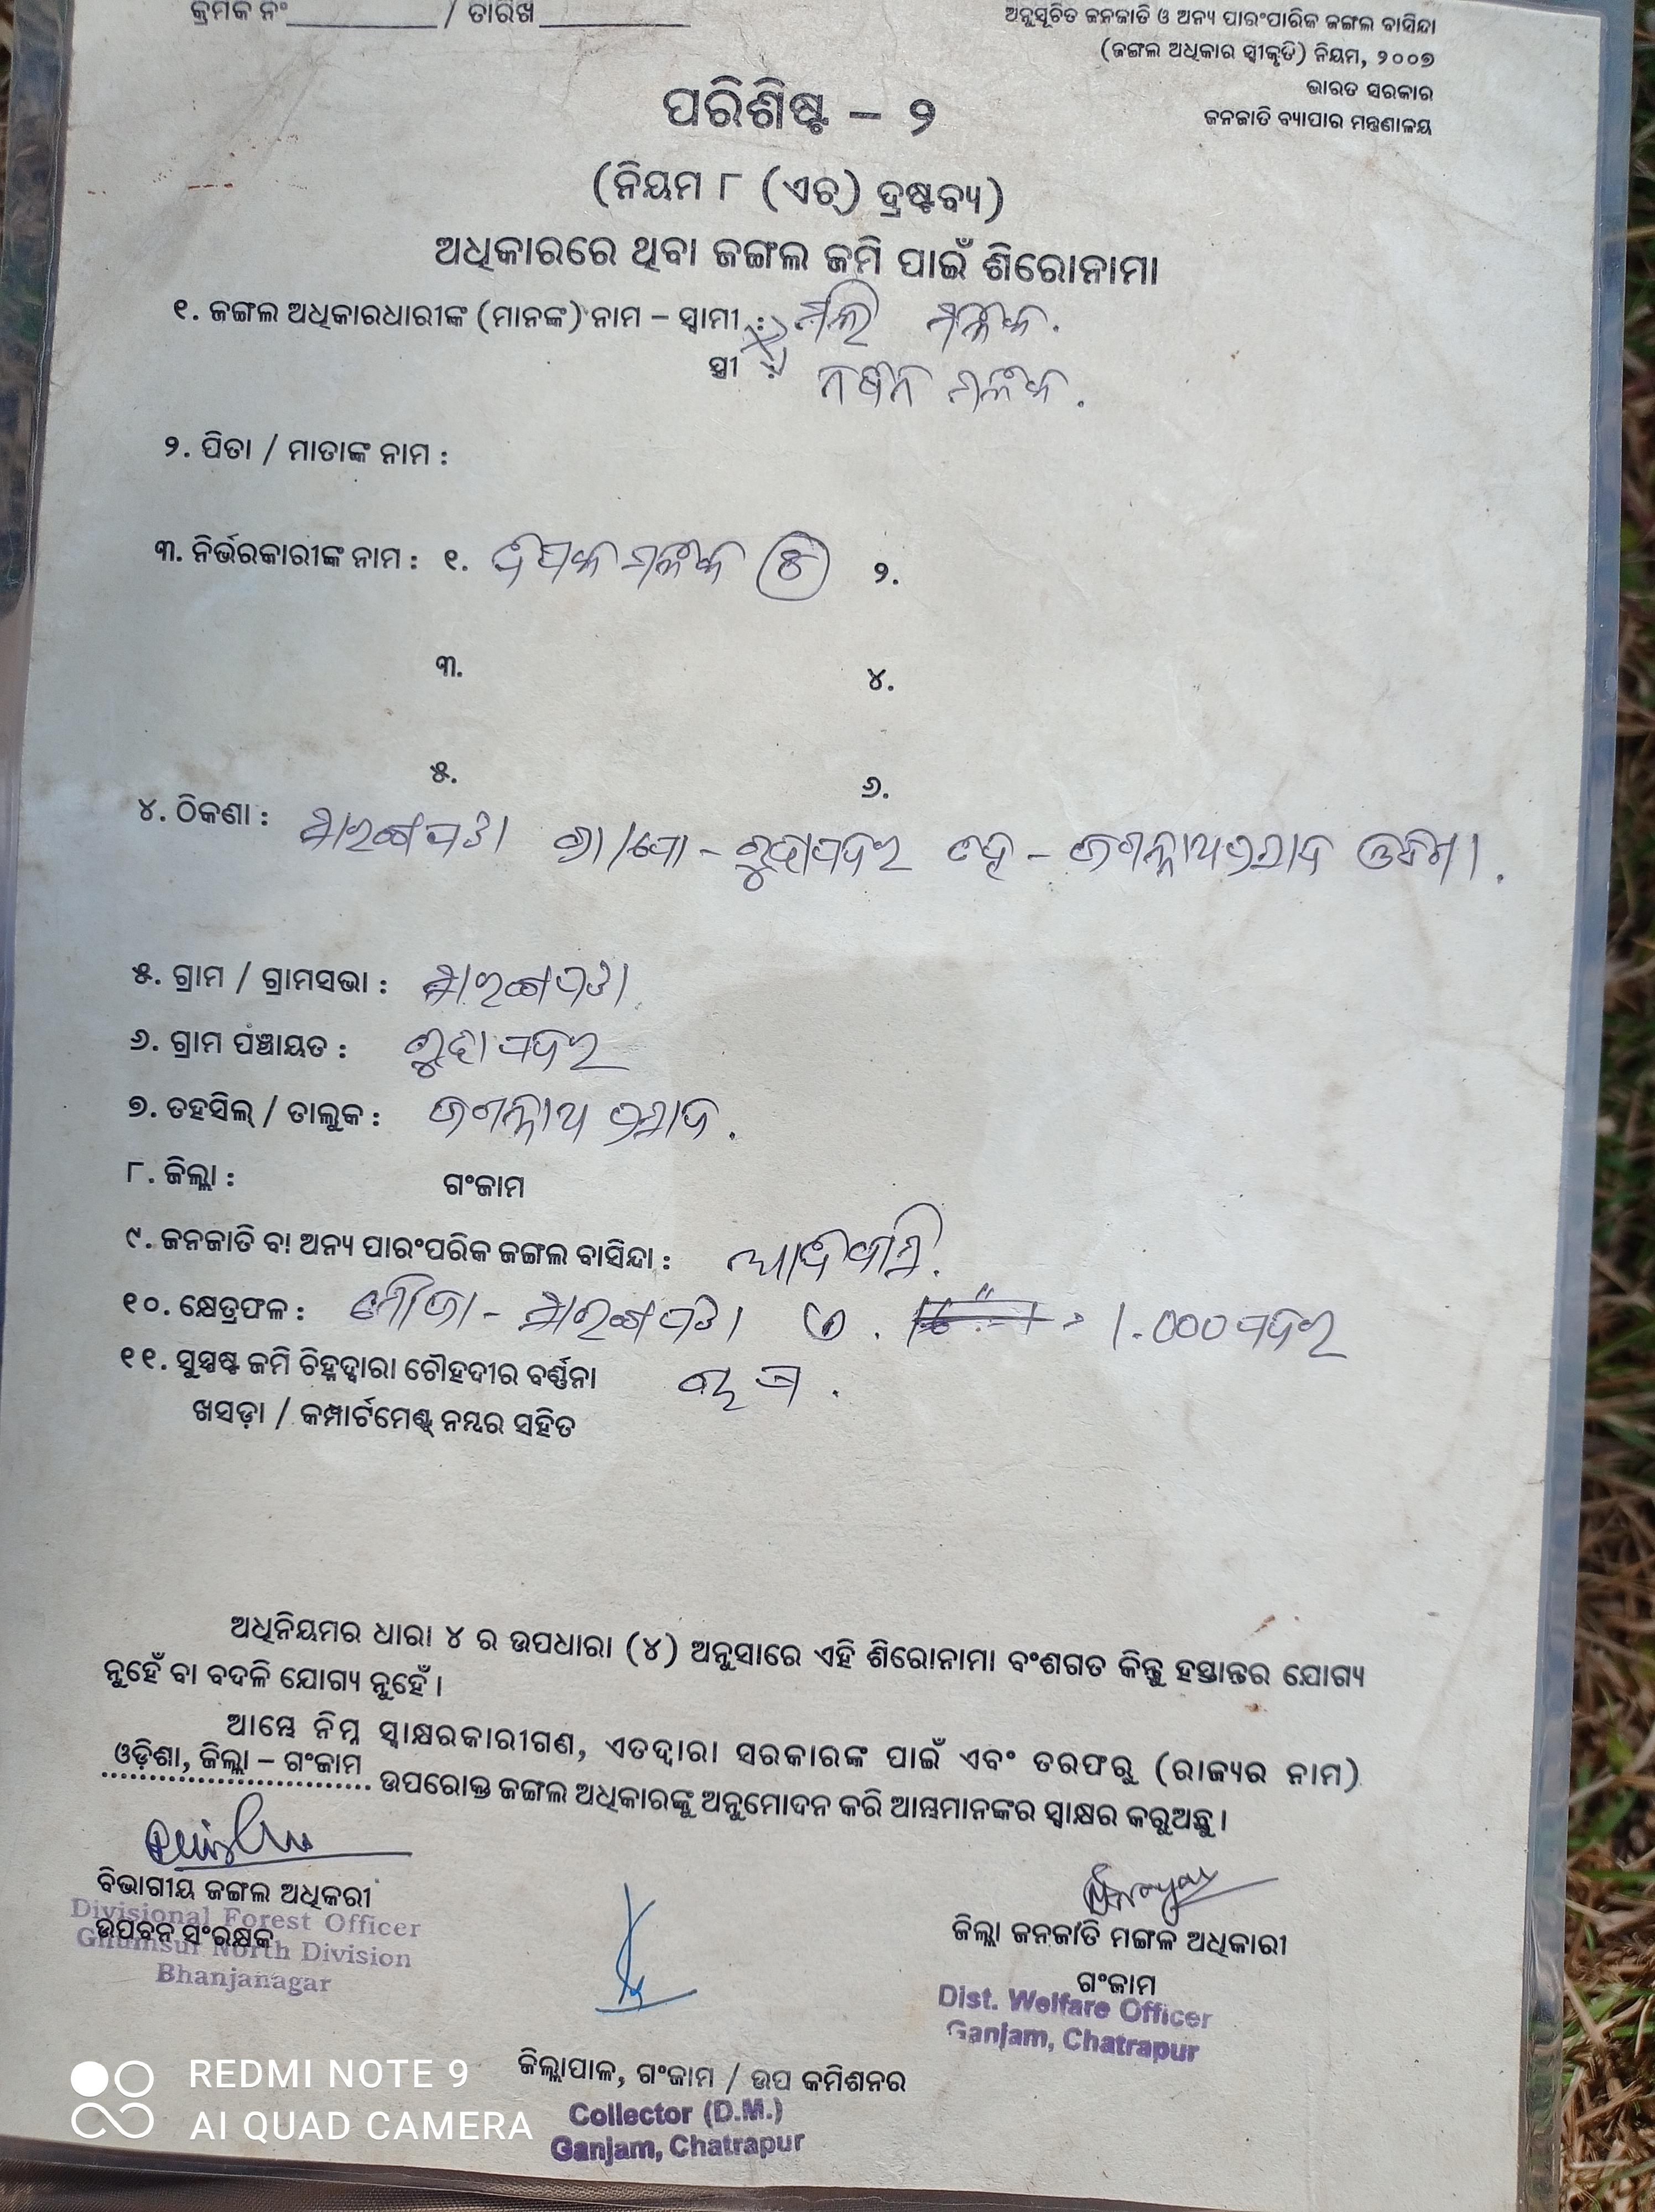 କ୍ରମିକ ନଂ / ତାରିଖ
ଅନୁସୂଚିତ ଜନଜାତି ଓ ଅନ୍ୟ ପାରଂପାରିକ ଜଙ୍ଗଲ ବାସିନ୍ଦା
(ଜଙ୍ଗଲ ଅଧିକାର ସ୍ୱୀକୃତି) ନିୟମ, ୨୦୦୭
ଭାରତ ସରକାର
ଜନଜାତି ବ୍ୟାପାର ମନ୍ତ୍ରଣାଳୟ
ପରିଶିଷ୍ଟ – ୨
(ନିୟମ ୮ (ଏଚ୍) ଦ୍ରଷ୍ଟବ୍ୟ)
ଅଧିକାରରେ ଥିବା ଜଙ୍ଗଲ ଜମି ପାଇଁ ଶିରୋନାମା
୧. ଜଙ୍ଗଲ ଅଧିକାରଧାରୀଙ୍କ (ମାନଙ୍କ) ନାମ – ସ୍ୱାମୀ : ମଲି ମଳିକ.
ସ୍ତ୍ରୀ : ମଳିକ.
୨. ପିତା / ମାତାଙ୍କ ନାମ :
୩. ନିର୍ଭରକାରୀଙ୍କ ନାମ : ୧. ଦିପକ ମଳିକ ୨.
୩. ୪.
୫. ୬.
୪. ଠିକଣା : ଗ୍ରା/ପୋ - ବୁଦାପଦର ଜଗନ୍ନାଥପ୍ରସାଦ
୫. ଗ୍ରାମ / ଗ୍ରାମସଭା :
୬. ଗ୍ରାମ ପଞ୍ଚାୟତ : ବୁଦାପଦର
୭. ତହସିଲ୍ / ତାଲୁକ : ଜଗନ୍ନାଥ ପ୍ରସାଦ.
୮. ଜିଲ୍ଲା : ଗଂଜାମ
୯. ଜନଜାତି ବା ଅନ୍ୟ ପାରଂପରିକ ଜଙ୍ଗଲ ବାସିନ୍ଦା : ଆଦିବାସି.
୧୦. କ୍ଷେତ୍ରଫଳ : ମୌଜା - 1.000
୧୧. ସୁସ୍ପଷ୍ଟ ଜମି ଚିହ୍ନଦ୍ୱାରା ଚୌହଦୀର ବର୍ଣ୍ଣନା
ଖସଡ଼ା / କମ୍ପାର୍ଟମେଣ୍ଟ୍ ନମ୍ବର ସହିତ
ଅଧିନିୟମର ଧାରା ୪ ର ଉପଧାରା (୪) ଅନୁସାରେ ଏହି ଶିରୋନାମା ବଂଶଗତ କିନ୍ତୁ ହସ୍ତାନ୍ତର ଯୋଗ୍ୟ
ନୁହେଁ ବା ବଦଳି ଯୋଗ୍ୟ ନୁହେଁ ।
ଆମ୍ଭେ ନିମ୍ନ ସ୍ୱାକ୍ଷରକାରୀଗଣ, ଏତଦ୍ୱାରା ସରକାରଙ୍କ ପାଇଁ ଏବଂ ତରଫରୁ (ରାଜ୍ୟର ନାମ)
ଓଡ଼ିଶା, ଜିଲ୍ଲା – ଗଂଜାମ ଉପରୋକ୍ତ ଜଙ୍ଗଲ ଅଧିକାରଙ୍କୁ ଅନୁମୋଦନ କରି ଆମ୍ଭମାନଙ୍କର ସ୍ୱାକ୍ଷର କରୁଅଛୁ ।
ବିଭାଗୀୟ ଜଙ୍ଗଲ ଅଧିକରୀ
Divisional Forest Officer
ଉପବନ ସଂରକ୍ଷକ
Ghumsur North Division
Bhanjanagar
ଜିଲ୍ଲା ଜନଜାତି ମଙ୍ଗଳ ଅଧିକାରୀ
ଗଂଜାମ
Dist. Welfare Officer
Ganjam, Chatrapur
ଜିଲ୍ଲାପାଳ, ଗଂଜାମ / ଉପ କମିଶନର
Collector (D.M.)
Ganjam, Chatrapur
REDMI NOTE 9
AI QUAD CAMERA